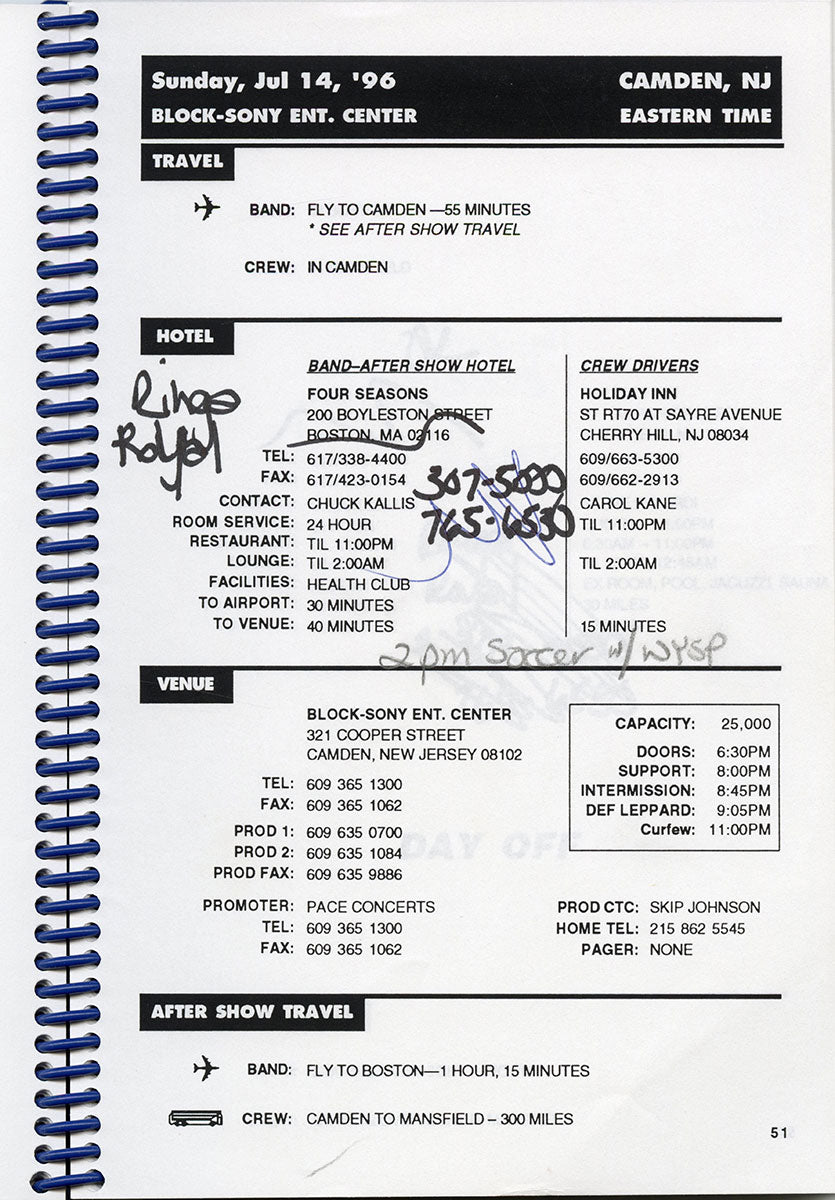 Sunday, Jul 14, '96 CAMDEN, NJ
BLOCK-SONY ENT. CENTER EASTERN TIME
TRAVEL
BAND: FLY TO CAMDEN —55 MINUTES
* SEE AFTER SHOW TRAVEL
CREW: IN CAMDEN
HOTEL
BAND–AFTER SHOW HOTEL CREW DRIVERS
FOUR SEASONS HOLIDAY INN
200 BOYLESTON STREET ST RT70 AT SAYRE AVENUE
BOSTON, MA 02116 CHERRY HILL, NJ 08034
TEL: 617/338-4400 609/663-5300
FAX: 617/423-0154 609/662-2913
307-5000
CONTACT: CHUCK KALLIS CAROL KANE
ROOM SERVICE: 24 HOUR TIL 11:00PM
765-6530
RESTAURANT: TIL 11:00PM
LOUNGE: TIL 2:00AM TIL 2:00AM
FACILITIES: HEALTH CLUB
TO AIRPORT: 30 MINUTES
TO VENUE: 40 MINUTES 15 MINUTES
2pm Soccer w/ WYSP
VENUE
BLOCK-SONY ENT. CENTER
321 COOPER STREET
CAMDEN, NEW JERSEY 08102
TEL: 609 365 1300
FAX: 609 365 1062
PROD 1: 609 635 0700
PROD 2: 609 635 1084
PROD FAX: 609 635 9886
CAPACITY: 25,000
DOORS: 6:30PM
SUPPORT: 8:00PM
INTERMISSION: 8:45PM
DEF LEPPARD: 9:05PM
Curfew: 11:00PM
PROMOTER: PACE CONCERTS PROD CTC: SKIP JOHNSON
TEL: 609 365 1300 HOME TEL: 215 862 5545
FAX: 609 365 1062 PAGER: NONE
AFTER SHOW TRAVEL
BAND: FLY TO BOSTON—1 HOUR, 15 MINUTES
CREW: CAMDEN TO MANSFIELD – 300 MILES
51